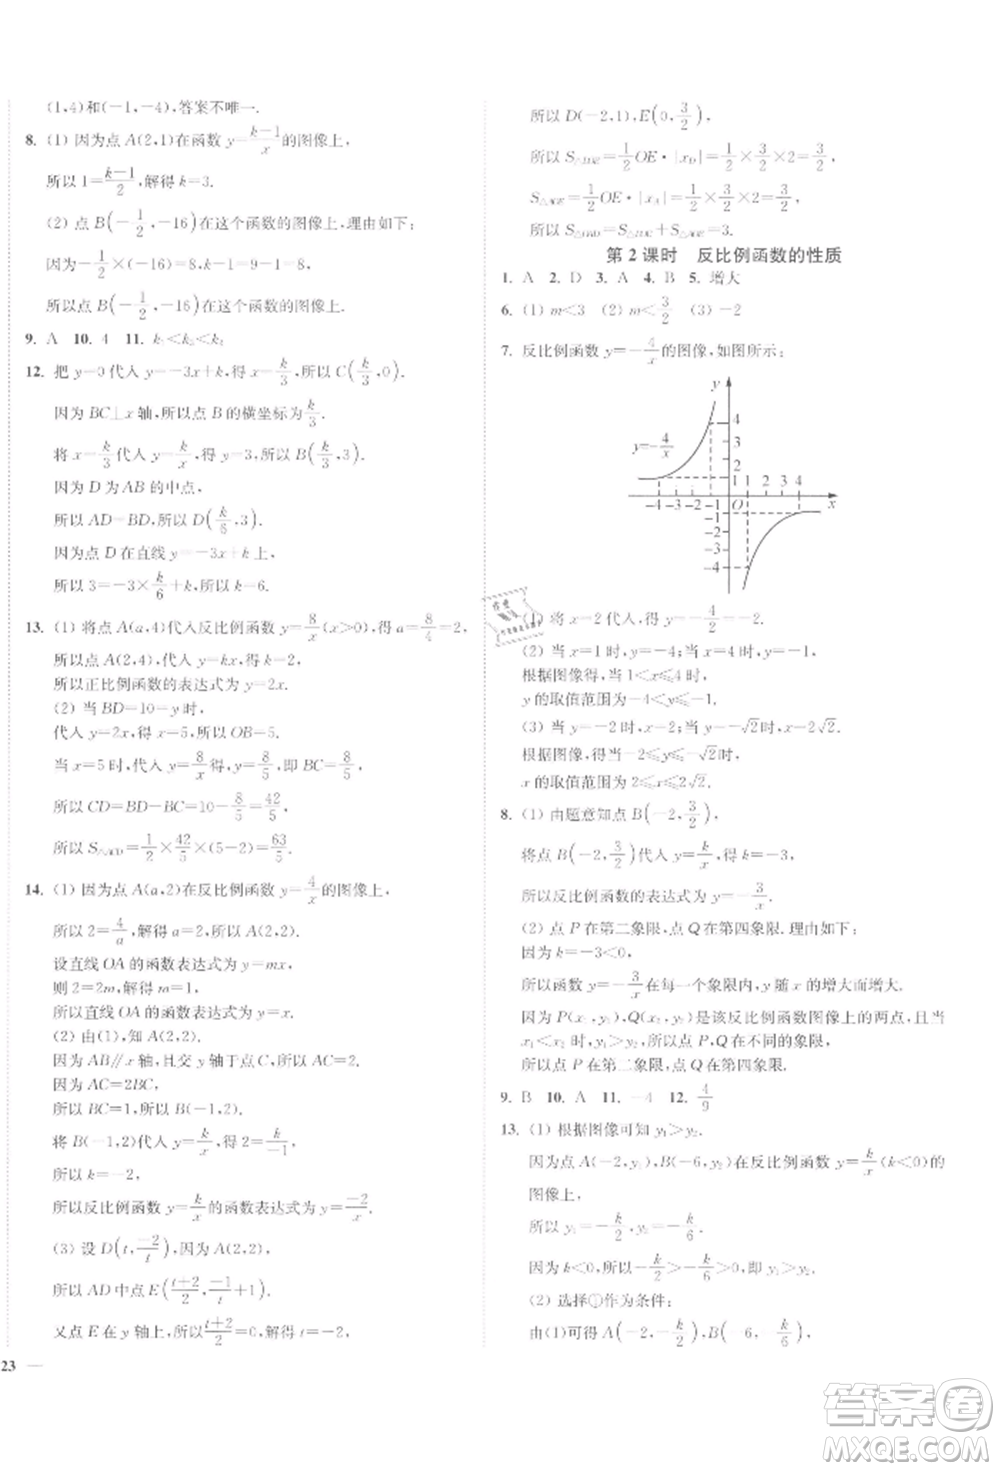 (1,4)和(-1,-4),答案不唯一.
8. (1) 因为点 A(2,1)在函数 y=\frac{k-1}{x}的图像上,
所以 1=\frac{k-1}{2},解得 k=3.
(2) 点 B(-\frac{1}{2},-16)在这个函数的图像上,理由如下:
因为-\frac{1}{2}×(-16)=8,
所以点 B(-\frac{1}{2},-16)在这个函数的图像上.
9. A 10. 4 11.
12. 把 y=0代入 y=-3x+k,得 x=\frac{k}{3},所以 C(\frac{k}{3},0).
因为 BC⊥x 轴,所以点 B 的横坐标为\frac{k}{3}.
将 x=\frac{k}{3}代入 y=\frac{k}{x},得 y=3,所以 B(\frac{k}{3},3).
因为 D 为 AB 的中点,
所以 AD=BD,所以 D(\frac{k}{6},3).
因为点 D 在直线 y=-3x+k 上,
所以 3=-3×\frac{k}{6}+k,所以 k=6.
13. (1) 将点 A(a,4)代入反比例函数 y=\frac{8}{x}(x>0),得 a=\frac{8}{4}=2,
所以点 A(2,4),代入 y=kx,得 k=2,
所以正比例函数的表达式为 y=2x.
(2) 当 BD=10=y 时,
代入 y=2x,得 x=5,所以 OB=5.
当 x=5时,代入 y=\frac{8}{x},得 y=\frac{8}{5},即 BC=\frac{8}{5},
所以 CD=BD-BC=10-\frac{8}{5}=\frac{42}{5},
所以 S△ACD=\frac{1}{2}×\frac{42}{5}×(5-2)=\frac{63}{5}.
14. (1) 因为点 A(a,2)在反比例函数 y=\frac{4}{x}的图像上,
所以 2=\frac{4}{a},解得 a=2,所以 A(2,2).
设直线 OA 的函数表达式为 y=mx,
则 2=2m,解得 m=1,
所以直线 OA 的函数表达式为 y=x.
(2) 由(1),知 A(2,2).
因为 AB∥x 轴,且交 y 轴于点 C,所以 AC=2.
因为 AC=2BC,
所以 BC=1,所以 B(-1,2).
将 B(-1,2)代入 y=\frac{k}{x},得 2=\frac{k}{-1},
所以 k=-2,
所以反比例函数 y=\frac{k}{x}的函数表达式为 y=\frac{-2}{x}.
(3) 设 D(t,\frac{-2}{t}),因为 A(2,2),
所以 AD 中点 E(\frac{t+2}{2},\frac{-1}{t}+1).
又点 E 在 y 轴上,所以\frac{t+2}{2}=0,解得 t=-2,
23
所以 D(-2,1),E(0,\frac{3}{2}),
所以 S△DOE=\frac{1}{2}OE·|xD|=\frac{1}{2}×\frac{3}{2}×2=\frac{3}{2},
S△AOE=\frac{1}{2}OE·|xA|=\frac{1}{2}×\frac{3}{2}×2=\frac{3}{2},
所以 S△OAD=S△DOE+S△AOE=3.
第 2 课时 反比例函数的性质
1. A 2. D 3. A 4. B 5. 增大
6. (1) m<3 (2) m<\frac{3}{2} (3) -2
7. 反比例函数 y=-\frac{4}{x}的图像,如图所示:
y
y=-\frac{4}{x}
4
3
2
1
-4 -3 -2 -1 O 1 2 3 4 x
-1
-2
-3
-4
(1) 将 x=-2代入 y=-\frac{4}{x},得 y=-\frac{4}{-2}=2.
(2) 当 x=1时,y=-4;当 x=4时,y=-1.
根据图像得,当 1<x≤4时,
y 的取值范围为-4<y≤-1.
(3) 当 y=-2时,x=2;当 y=-√2时,x=2√2.
根据图像,得当-2≤y≤-√2时,
x 的取值范围为 2≤x≤2√2.
8. (1) 由题意知点 B(-2,\frac{3}{2}),
将点 B(-2,\frac{3}{2})代入 y=\frac{k}{x},得 k=-3,
所以反比例函数的表达式为 y=-\frac{3}{x}.
(2) 点 P 在第二象限,点 Q 在第四象限.理由如下:
因为 k=-3<0,
所以函数 y=-\frac{3}{x}在每个象限内,y 随 x 的增大而增大.
因为 P(x₁,y₁),Q(x₂,y₂)是该反比例函数图像上的两点,且当
x₁<x₂时,y₁>y₂,所以点 P,Q 在不同的象限上,
所以点 P 在第二象限,点 Q 在第四象限.
9. B 10. A 11. -4 12. \frac{4}{9}
13. (1) 根据图像可知 y₁>y₂.
因为点 A(-2,y₁),B(-6,y₂)在反比例函数 y=\frac{k}{x}(k<0)的
图像上,
所以 y₁=-\frac{k}{2},y₂=-\frac{k}{6}.
因为 k<0,所以-\frac{k}{2}>-\frac{k}{6}>0,即 y₁>y₂.
(2) 选择①作为条件:
由(1)可得 A(-2,-\frac{k}{2}),B(-6,-\frac{k}{6}),
答案圈
MXQE.COM